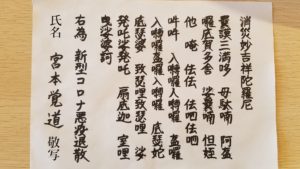 消災妙吉祥陀羅尼
曩謨三満哆 母駄喃 阿盋
囉底賀多舍 娑曩喃 怛姪
他 唵 佉佉 佉呬佉呬
吽吽 入嚩囉入嚩囉 盋囉
入嚩囉盋囉入嚩囉 底瑟
底瑟 致瑟哩致瑟哩 娑
発吒娑発吒 扇底迦 室哩
曳娑婆訶
右為 新型コロナ悪疫退散
氏名 宮本覚道 敬写